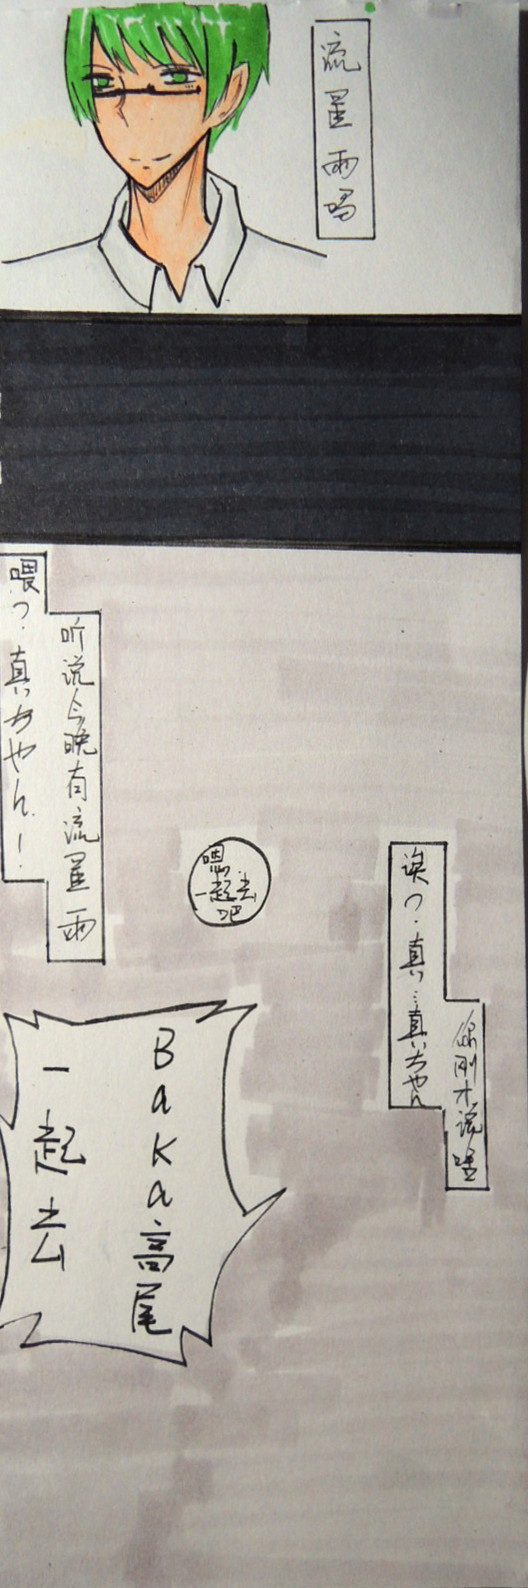 流星雨吗
喂？真ちゃん！
听说今晚有流星雨
嗯
一起去
吧
诶？真…真ちゃん
你刚才说啥
BaKa高尾
一起去